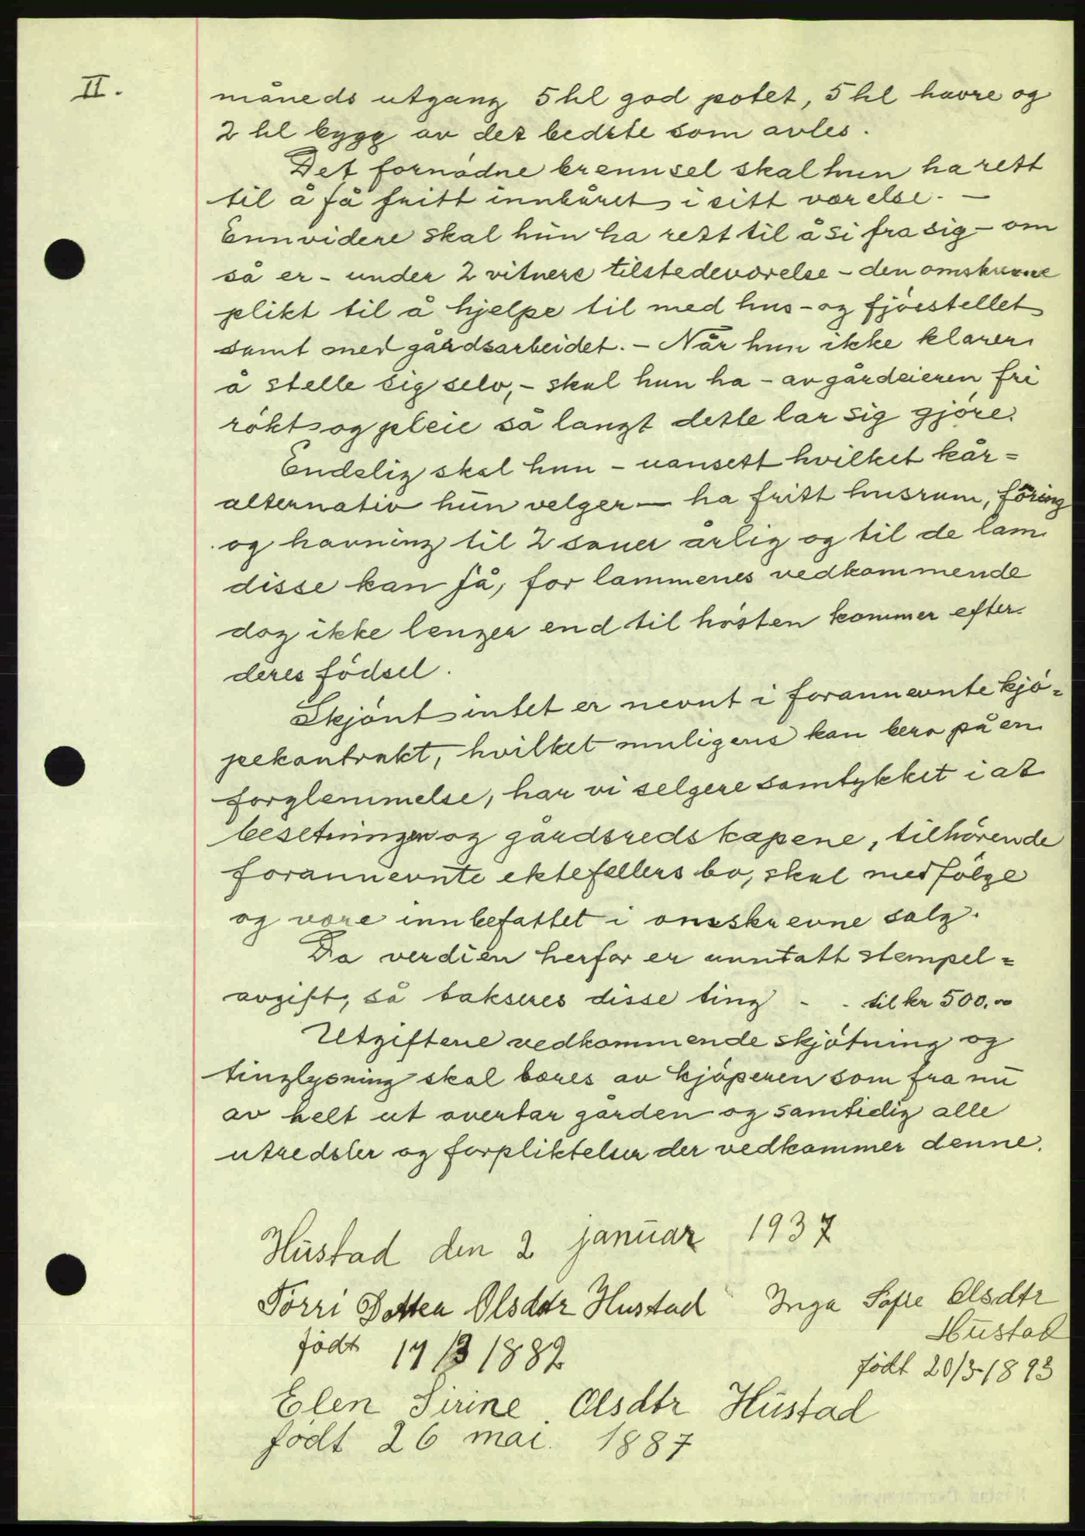 II.
måneds utgang 5 hl god potet, 5 hl havre og
2 hl bygg av det bedste som avles.
Det fornødne brennsel skal hun ha rett
til å få fritt innbåret i sitt værelse. —
Ennvidere skal hun ha rett til å si fra sig – om
så er – under 2 vitners tilstedeværelse – den omskrevne
plikt til å hjelpe til med hus- og fjösstellet
samt med gårdsarbeidet. – Når hun ikke klarer
å stelle sig selv, – skal hun ha – av gårdeieren fri
røkt og pleie så langt dette lar sig gjøre.
Endelig skal hun – uansett hvilket kår=
alternativ hun velger – ha fritt husrum, fôring
og havning til 2 sauer årlig og til de lam
disse kan få, for lammenes vedkommende
dog ikke lenger end til hösten kommer efter
deres födsel.
Skjönt intet er nevnt i forannevnte kjö=
pekontrakt, hvilket muligens kan bero på en
forglemmelse, har vi selgere samtykket i at
besetningen og gårdsredskapene, tilhörende
forannevnte ektefellers bo, skal medfölge
og være innbefattet i omskrevne salg.
Da verdien herfor er unntatt stempel=
avgift, så takseres disse ting - - til kr 500.00
Utgiftene vedkommende skjötning og
tinglysning skal bæres av kjöperen som fra nu
av helt ut overtar gården og samtidig alle
utredsler og forpliktelser der vedkommer denne.
Hustad den 2 januar 1937
Torri Dottea Olsdtr Hustad Inga Sofie Olsdtr
Hustad
födt 19/3 1882
födt 20/3-1893
Elen Sirine Olsdtr Hustad
födt 26 mai 1887